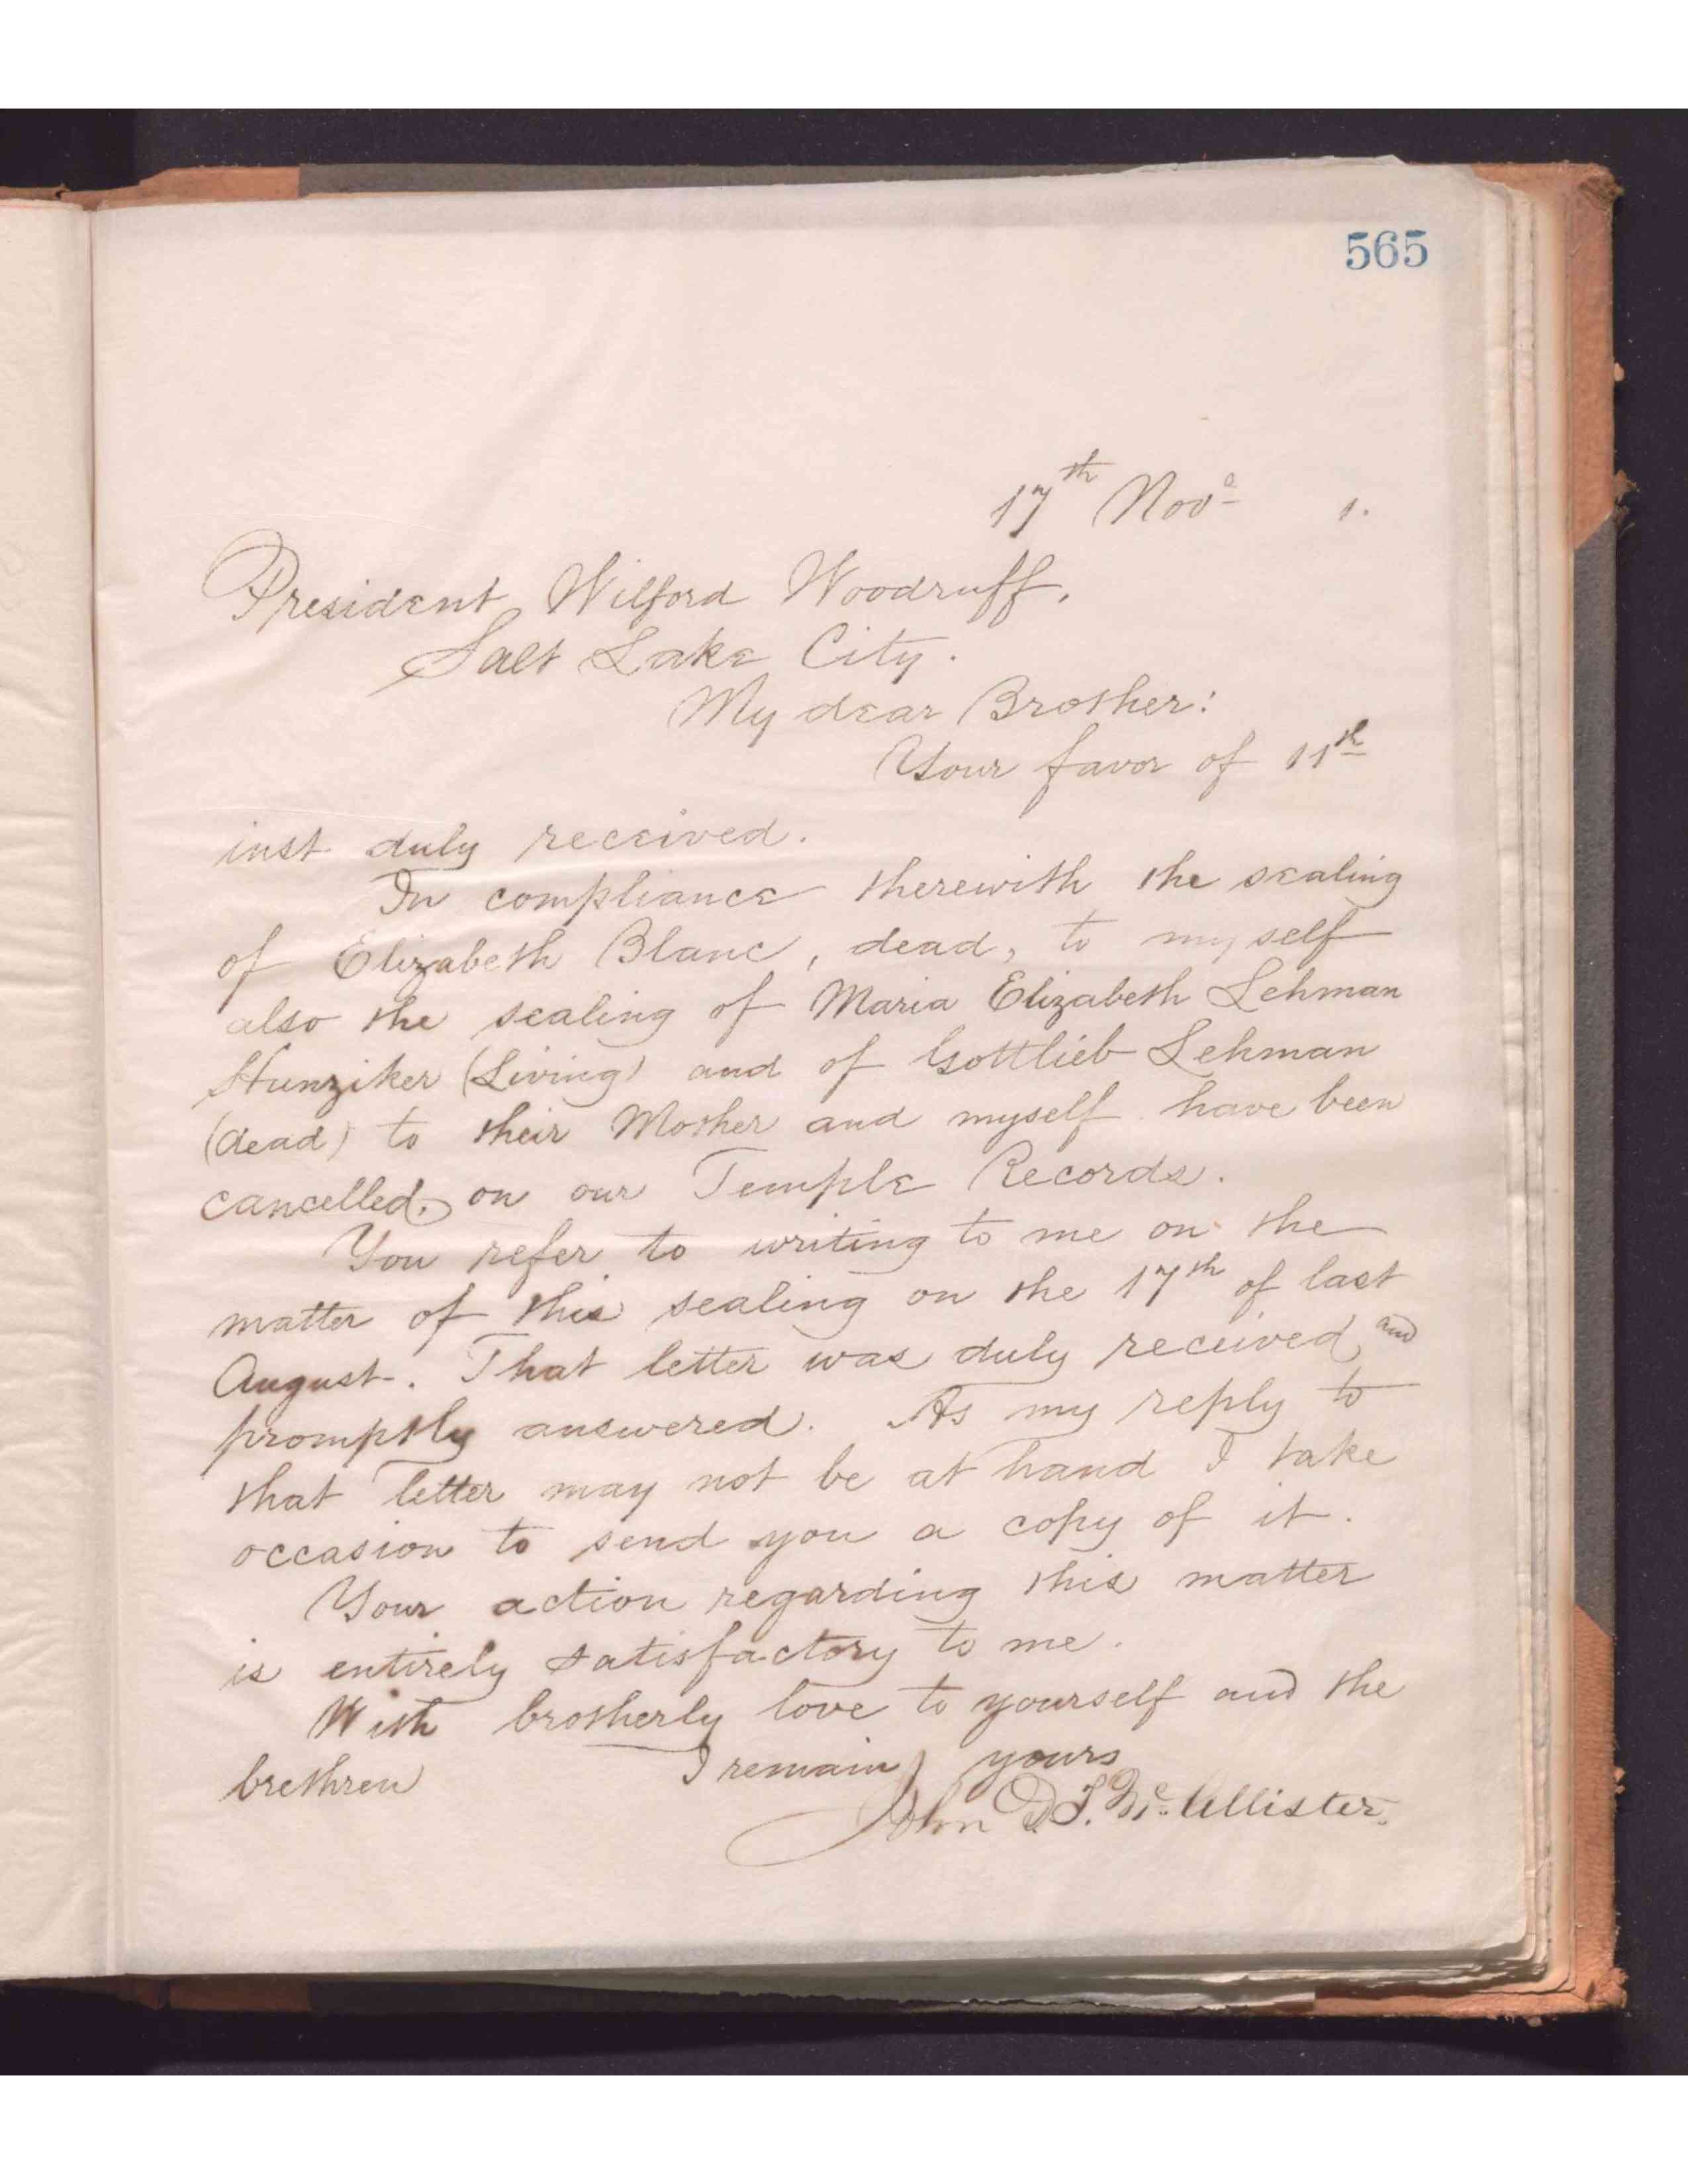 565
17th Nov. 1.
President Wilford Woodruff,
Salt Lake City.
My dear Brother:
Your favor of 11th
inst duly received.
In compliance therewith the sealing
of Elizabeth Blanc, dead, to myself
also the sealing of Maria Elizabeth Lehman
Hunziker (Living) and of Gottlieb Lehman
(dead) to their Mother and myself have been
cancelled, on our Temple Records.
You refer to writing to me on the
matter of this sealing on the 17th of last
August. That letter was duly received and
promptly answered. As my reply to
that letter may not be at hand I take
occasion to send you a copy of it.
Your action regarding this matter
is entirely satisfactory to me.
With brotherly love to yourself and the
brethren I remain yours
John D. T. McAllister.